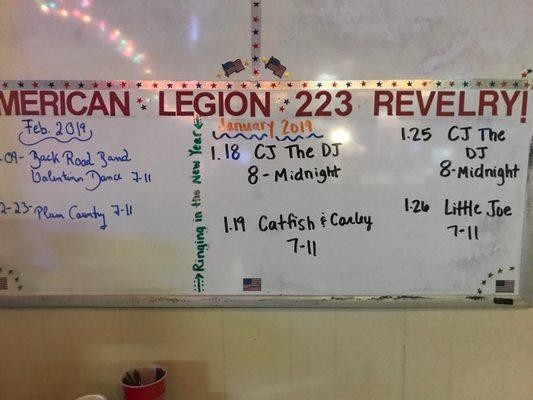 MERICAN LEGION 223 REVELRY!
Feb. 2019
-09- Back Road Band
Valentines Dance 7-11
2-23- Plum Country 7-11
Ringing in the New Year
January 2019
1.18 CJ The DJ
8-Midnight
1.19 Catfish & Carley
7-11
1.25 CJ The
DJ
8-Midnight
1.26 Little Joe
7-11